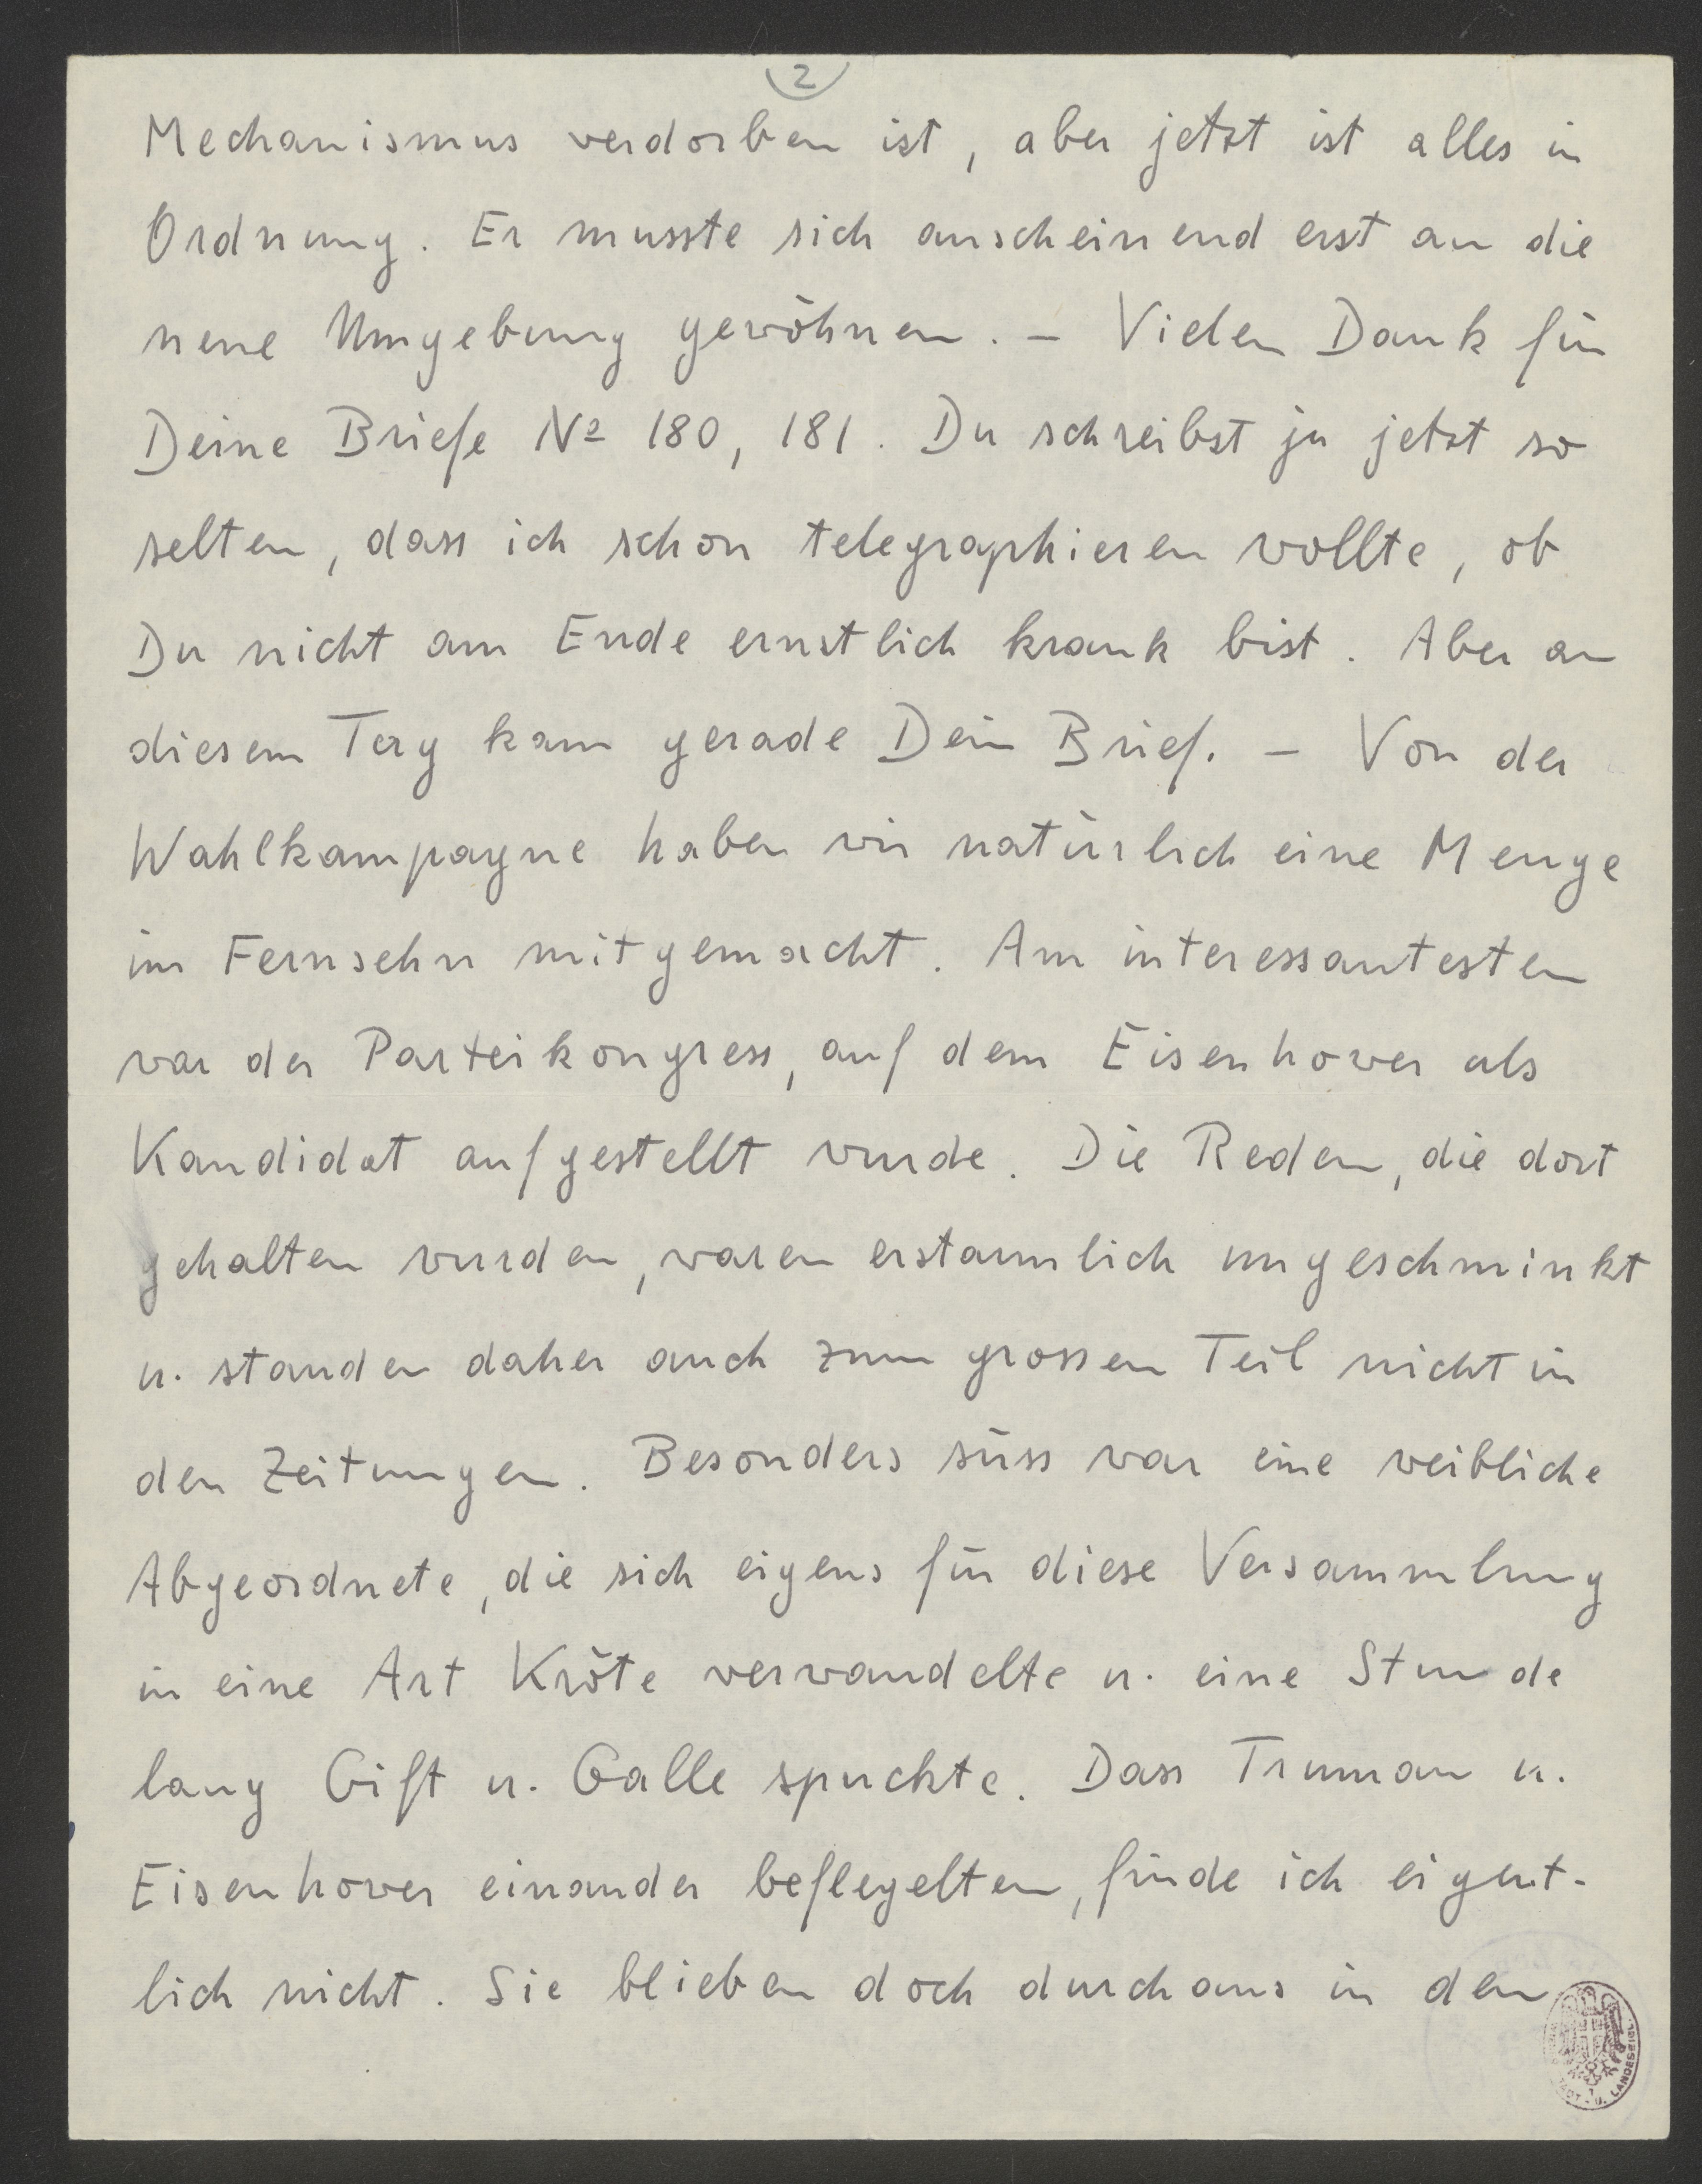 2
Mechanismus verdorben ist, aber jetzt ist alles in
Ordnung. Er musste sich anscheinend erst an die
neue Umgebung gewöhnen. – Vielen Dank für
Deine Briefe No 180, 181. Du schreibst ja jetzt so
selten, dass ich schon telegraphieren wollte, ob
Du nicht am Ende ernstlich krank bist. Aber an
diesem Tag kam gerade Dein Brief. – Von der
Wahlkampagne haben wir natürlich eine Menge
im Fernsehn mitgemacht. Am interessantesten
war der Parteikongress, auf dem Eisenhower als
Kandidat aufgestellt wurde. Die Reden, die dort
gehalten wurden, waren erstaunlich ungeschminkt
u. standen daher auch zum grossen Teil nicht in
den Zeitungen. Besonders süss war eine weibliche
Abgeordnete, die sich eigens für diese Versammlung
in eine Art Kröte verwandelte u. eine Stunde
lang Gift u. Galle spuckte. Dass Truman u.
Eisenhower einander beflegelten, finde ich eigent-
lich nicht. Sie blieben doch durchaus in den
U. LANDESBIBL.